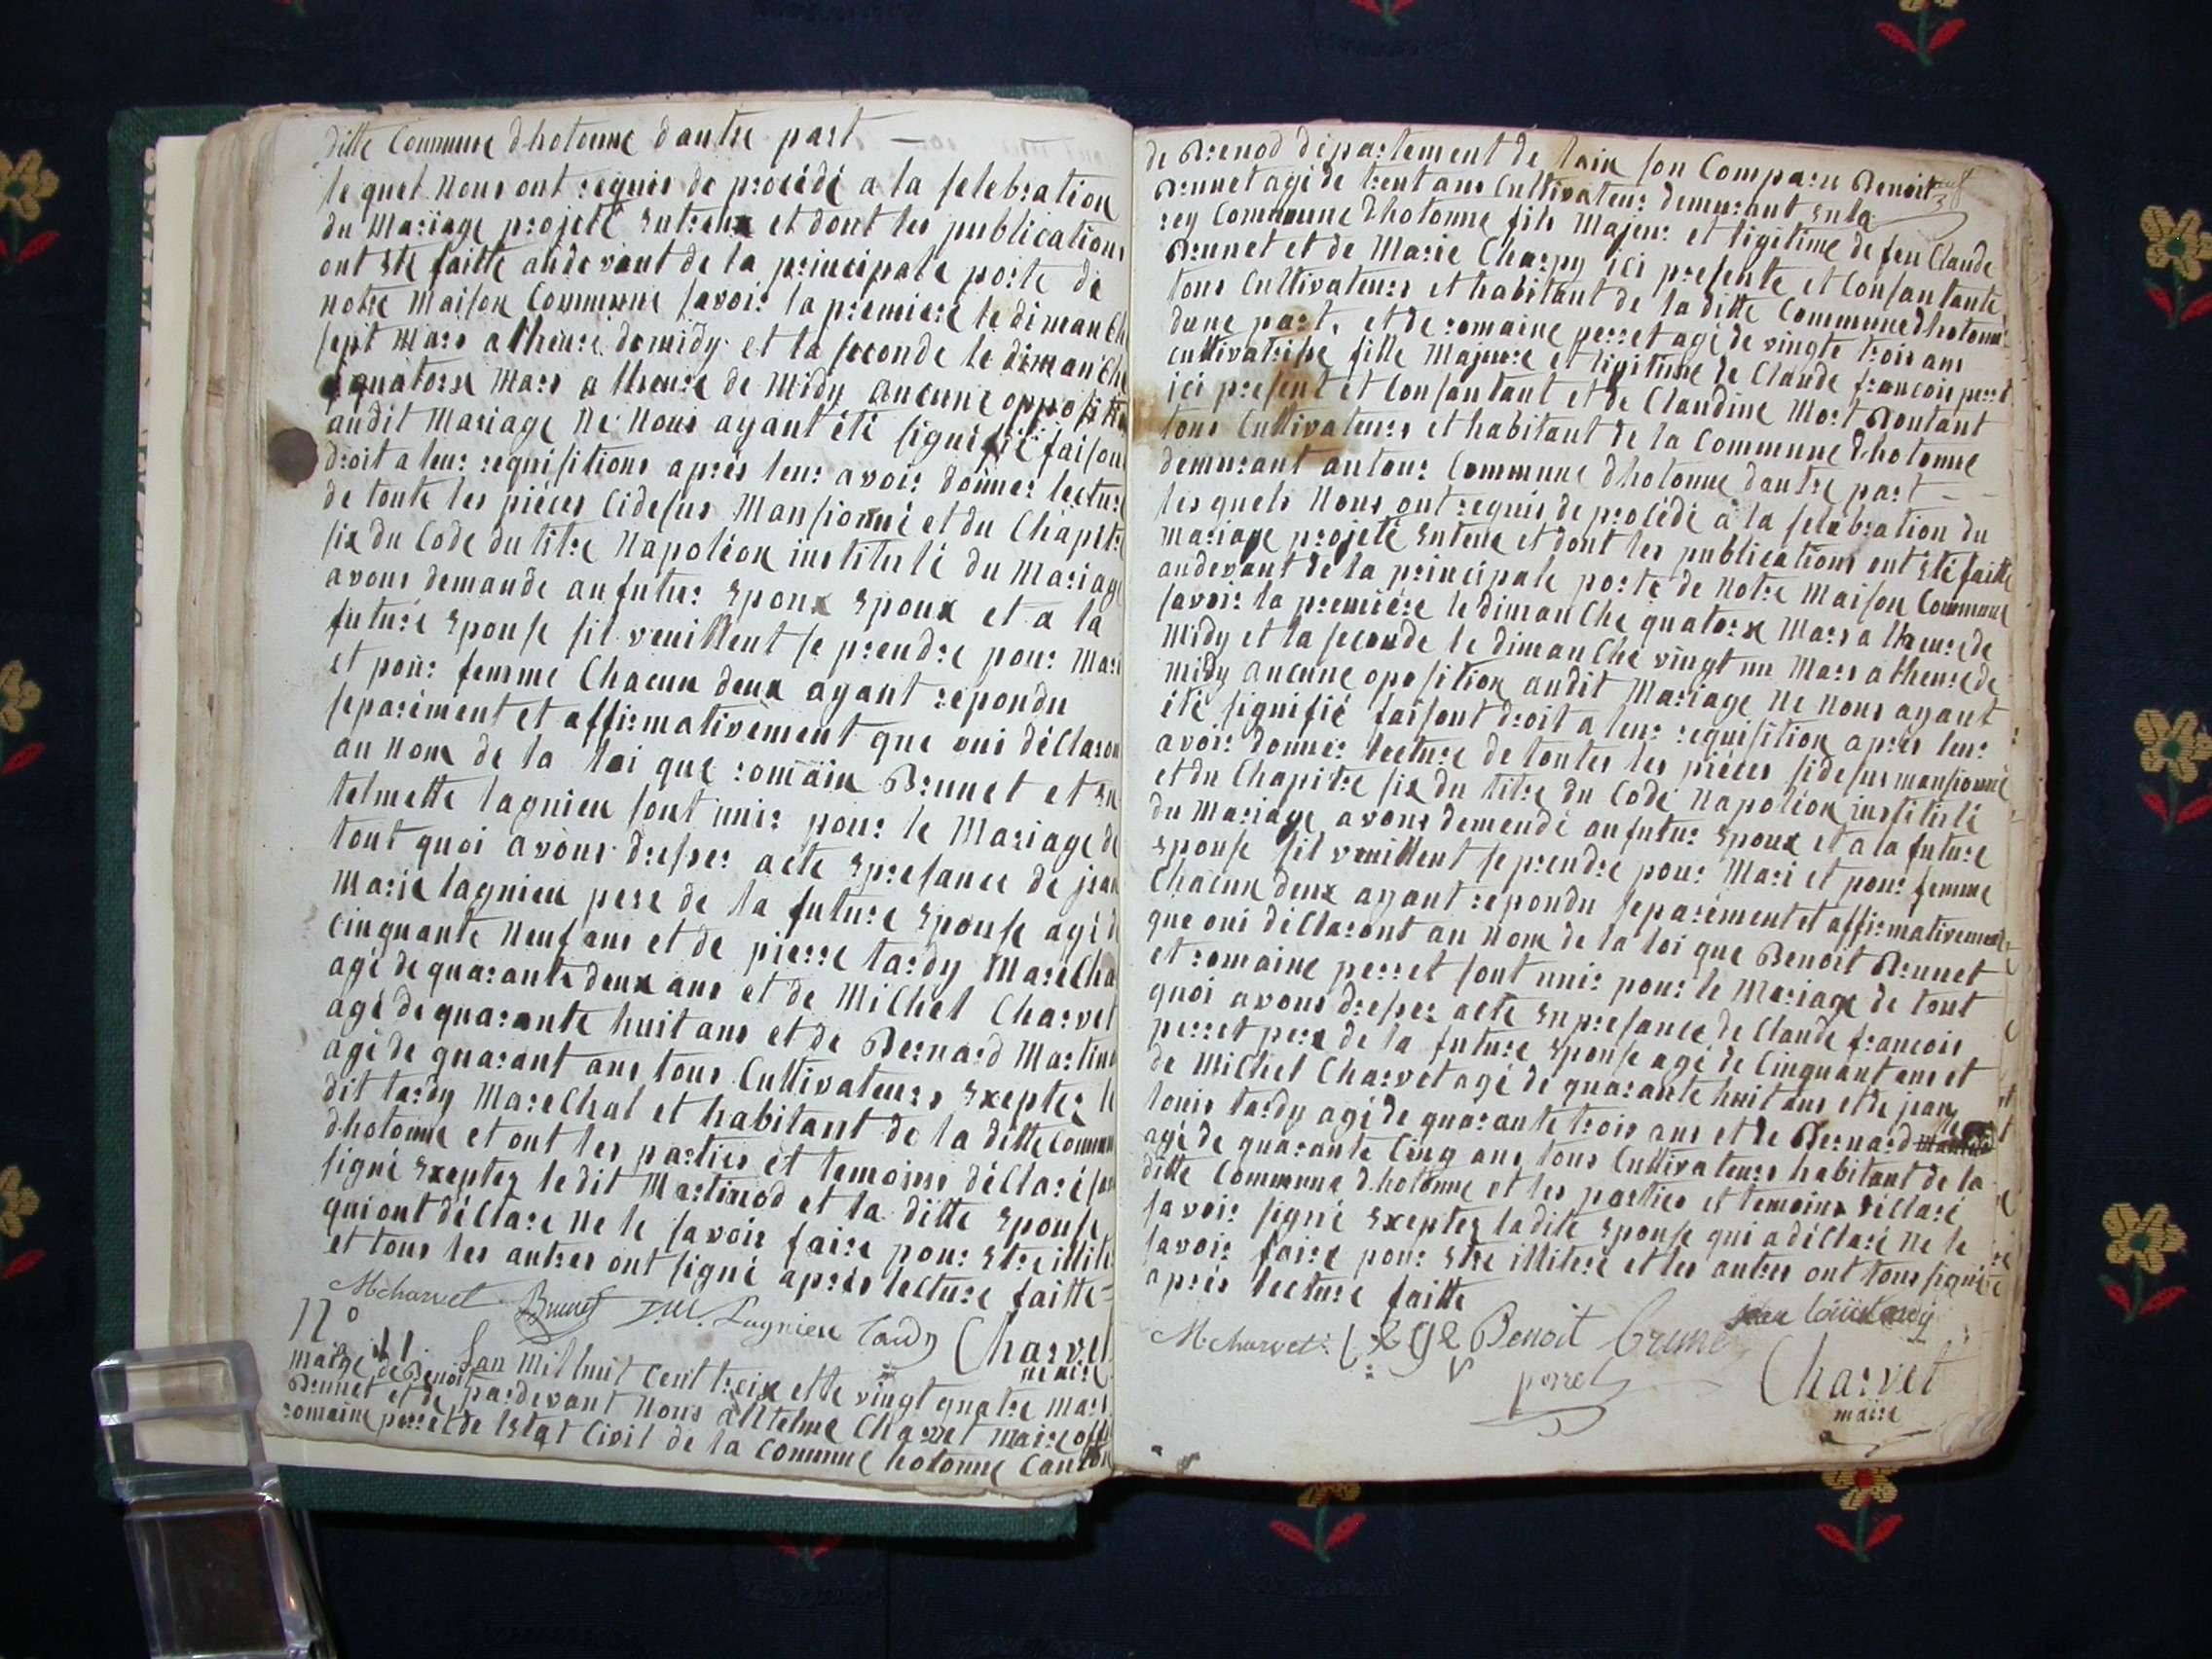 ditte Commune dhotonne dautre part —
lequel nous ont requis de procédé a la selebration
du Mariage projeté Entreux et dont les publications
ont Eté faitte audevant de la principale porte de
notre Maison Commune savoir la premiere le dimanche
sept Mars a lheure de midy et la seconde le dimanche
quatorze Mars a lheure de Midy aucune oppositi
audit Mariage Ne Nous ayant été signifié faison
droit a leur requisitions après leur avoir donner lecture
de toute les pièces Cidesus Mansionné et du Chapitre
six du Code du titre Napoléon institulé du Mariage
avons demande au futur Epoux Epoux et a la
future Epouse sil veuillent se prendre pour Mari
et pour femme Chacun deux ayant répondu
separément et affirmativement que oui déclaron
au Nom de la loi que romain Brunet et En
telmette lagnieu sont unir pour le Mariage de
tout quoi avons dresser acte Epresance de jean
Marie lagnieu pere de la future Epouse agé de
cinquante Neuf ans et de pierre tardy Marecha
agé de quarante deux ans et de Milchel Charvet
agé de quarante huit ans et de Bernard Martino
agé de quarant ans tous Cultivateurs Exepter le
dit tardy Marechal et habitant de la ditte Commun
dhotonne et ont les parties et temoins déClaré
signé Exepter ledit Martinod et la ditte Epouse
qui ont déClare Ne le savoir faire pour Etre illite
et tous les autres ont signé après lecture faitte
M charvet Brunet J.M. Lagnieu tardy Charvet
maire
N° 11
Marge de Benoit
Brunet et de
romaine perret
Lan Mil huit Cent treize et le vingt quatre Mars
pardevant Nous antelme Charvet Maire offi
de letat Civil de la Commune hotonne Canton
de Brenod département de lain son Comparu Benoit
Brunet agé de trent ans Cultivateur demurant Enla
rey Commune dhotonne fils Majeur et ligitime de feu Claude
Brunet et de Marie Charpy ici presente et Consantante
tous Cultivateurs et habitant de la ditte Commune dhotonne
dune part, et de romaine perret agé de vingte trois ans
cultivatrisse fille Majeure et ligitime de Claude francois perret
ici present et Consantant et de Claudine Mort Rontant
tous Cultivateurs et habitant de la Commune dhotonne
demurant autour Commune dhotonne dautre part —
lesquels Nous ont requis de procédé a la selebration du
mariage projeté Enteux et dont les publications ont Eté faitte
audevant de la principale porte de Notre Maison Commune
savoir la première le dimanche quatorze Mars a lheure de
Midy et la seconde le dimanche vingt un Mars a lheure de
midy aucune oposition audit Mariage Ne Nous ayant
été signifié faisont droit a leur requisition après leur
avoir donner lecture de toutes les pièces sidesus mansionné
et du Chapitre six du titre du Code Napoléon institulé
du Mariage avons demendé au futur Epoux et a la future
Epouse sil veuillent se prendre pour Mari et pour femme
Chacun deux ayant repondu separément et affirmativement
que oui déclaront au Nom de la loi que Benoit Brunet
et romaine perret sont unir pour le Mariage de tout
quoi avons dresser acte Enpresance de Claude francois
perret pere de la future Epouse agé de Cinquant ans et
de Milchel Charvet agé de quarante huit ans et de jean
louis tardy agé de quarante trois ans et de Bernard
agé de quarante Cinq ans tous Cultivateurs habitant de la
ditte Commune dhotonne et les parties et temoins déclaré
savoir signé Exepter ladite Epouse qui a déclaré Ne le
savoir faire pour Etre illiteré et les autres ont tous signé
après lecture faitte
M charvet Benoit brunet jean louis tardy
perret Charvet
maire